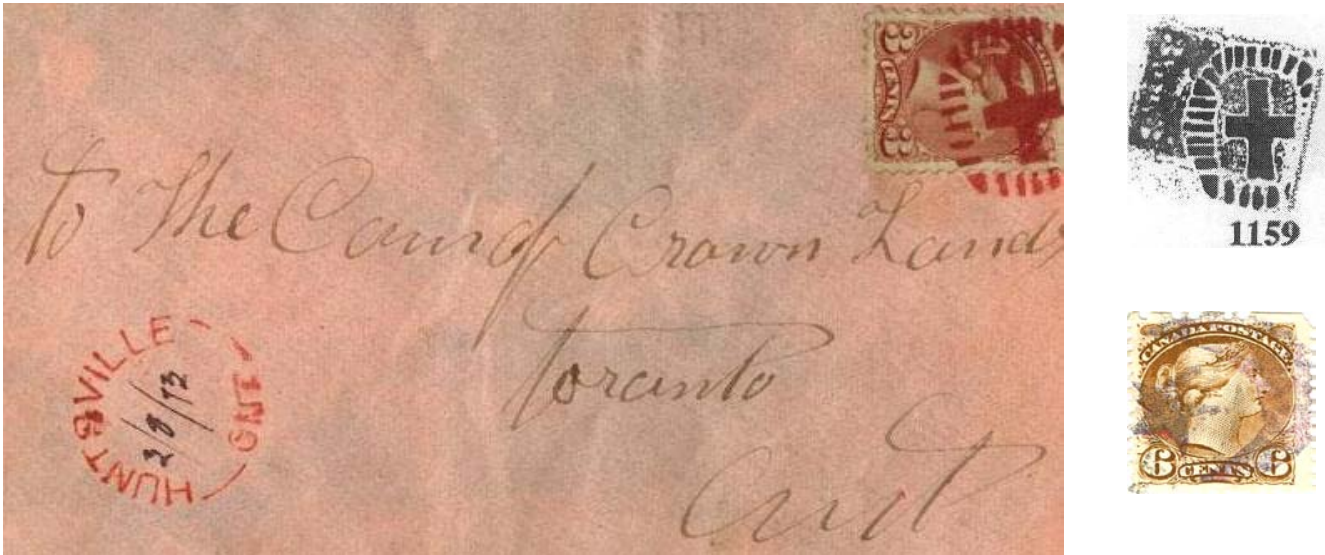 3 CENTS 3
to The Com of Crown Lands
Toronto
Ont
HUNTSVILLE
ONT
2/8/73
1159
CANADA POSTAGE
6 CENTS 6